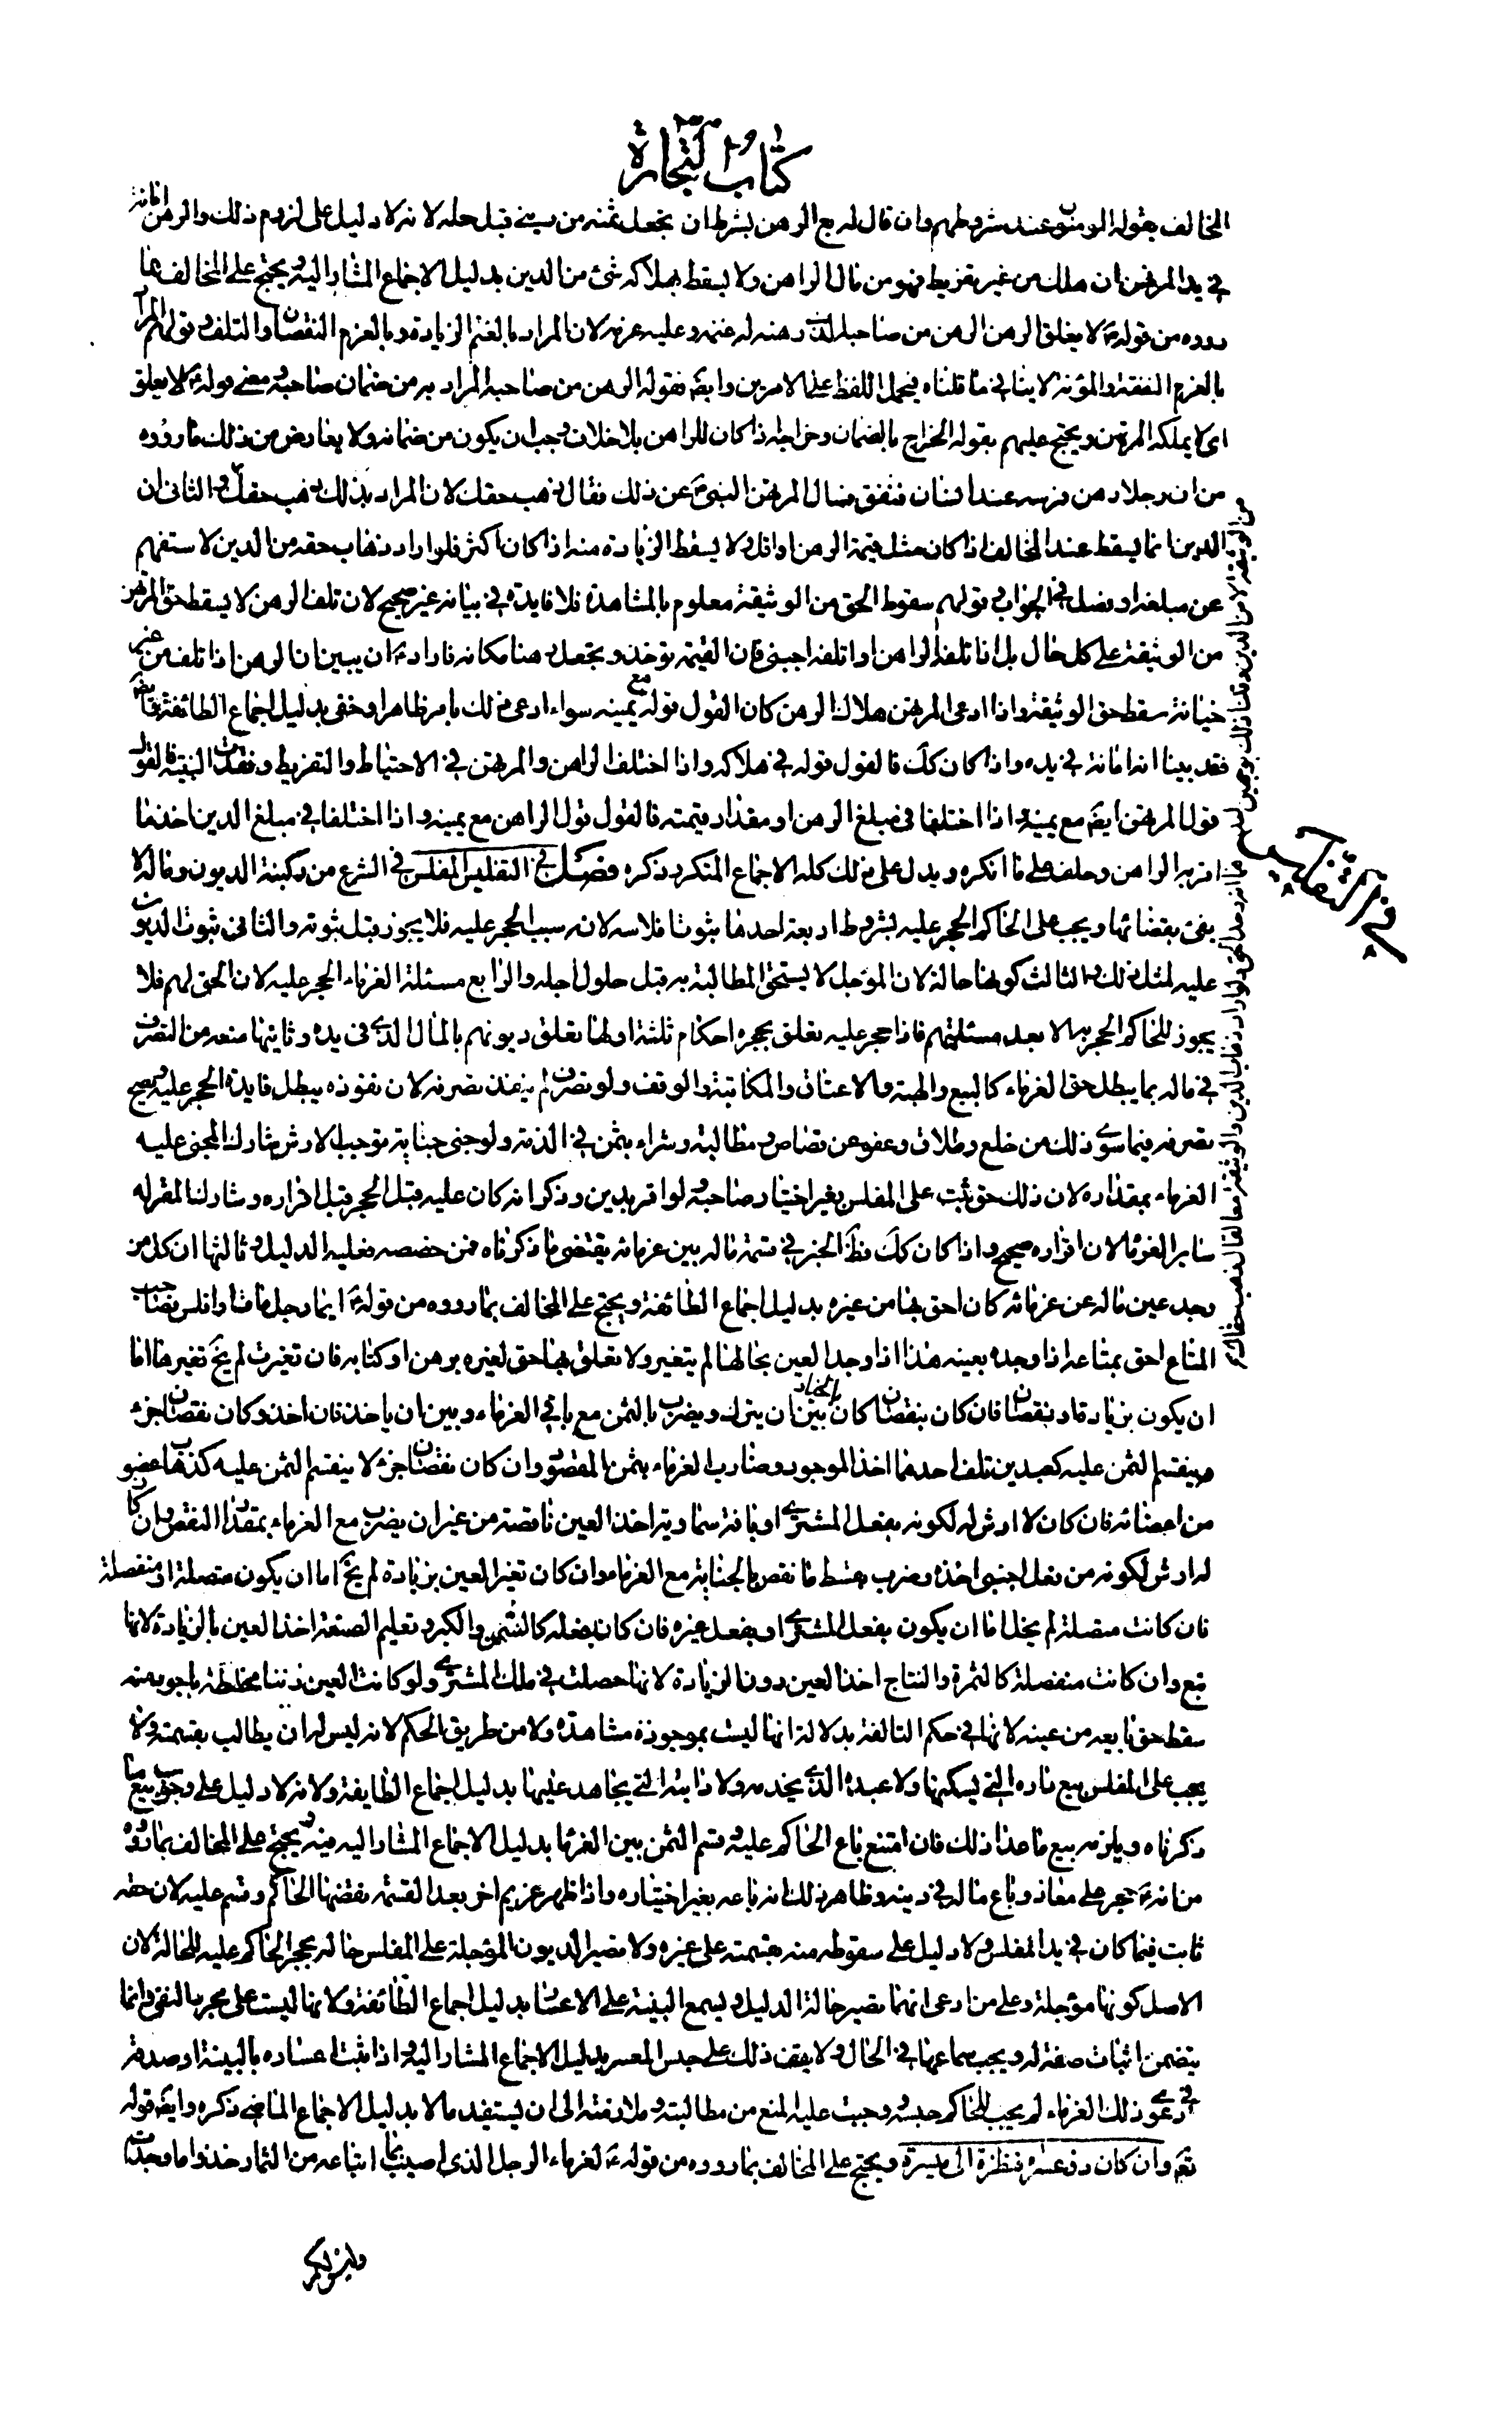 كتاب التجارة
المخالف بقوله المومنون عند شروطهم وان قال له بع الرهن بشرط ان تجعل ثمنه من ديني قبل حله لانه لا دليل على لزوم ذلك والرهن امانة
في يد المرتهن ان هلك من غير تفريط فهو من مال الراهن ولا يسقط بهلاكه شئ من الدين بدليل الاجماع المشار اليه ويحتج على المخالف بما
رووه من قوله ع لا يغلق الرهن الرهن من صاحبه الذي رهنه له غنمه وعليه غرمه لان المراد بالغنم الزيادة وبالغرم النقصان والتلف وقولهم المراد
بالغرم النفقة والمؤنة لا ينافي ما قلناه فيحمل اللفظ على الامرين وايضا فقوله الرهن من صاحبه المراد به من ضمان صاحبه ومعنى قوله ع لا يغلق
اي لا يملكه المرتهن ويحتج عليهم بقوله الخراج بالضمان وخراجه اذا كان للراهن بلا خلاف وجب ان يكون من ضمانه ولا يعارض من ذلك ما رووه
من ان رجلا رهن فرسه عند انسان فنفق فسال المرتهن النبي ص عن ذلك فقال ذهب حقك لان المراد بذلك ذهب حقك
الدين انما يسقط عند المخالف اذا كان مثل قيمة الرهن او اقل ولا يسقط الزيادة منه اذا كان اكثر فلو اراد ذهاب حقه من الدين لاستفهم
عن مبلغه او فصل في الجواب وقولهم سقوط الحق من الوثيقة معلوم بالمشاهدة فلا فايدة في بيانه غير صحيح لان تلف الرهن لا يسقط حق المرتهن
من الوثيقة على كل حال بل اذا اتلفه الراهن او اتلفه اجنبي فان القيمة توخذ وتجعل رهنا مكانه فاراد ع ان يبين ان الرهن اذا تلف من غير
خيانة سقط حق الوثيقة واذا ادعى المرتهن هلاك الرهن كان القول قوله مع يمينه سواء ادعى ذلك بامر ظاهر او خفي بدليل اجماع الطائفة وايضا
فقد بينا انه امانة في يده واذا كان كك فالقول قوله في هلاكه واذا اختلف الراهن والمرتهن في الاحتياط والتفريط وفقدت البينة فالقول
قول المرتهن ايضا مع يمينه واذا اختلفا في مبلغ الرهن او مقدار قيمته فالقول قول الراهن مع يمينه واذا اختلفا في مبلغ الدين اخذ ما
اقر به الراهن وحلف على ما انكره ويدل على ذلك كله الاجماع المتكرر ذكره فصل في التفليس المفلس في الشرع من ركبته الديون وماله لا
يفي بقضائها ويجب على الحاكم الحجر عليه بشروط اربعة احدها ثبوت افلاسه لانه سبب الحجر عليه فلا يجوز قبل ثبوته والثاني ثبوت الديون
عليه لمثل ذلك والثالث كونها حالة لان المؤجل لا يستحق المطالبة به قبل حلول اجله والرابع مسئلة الغرماء الحجر عليه لان الحق لهم فلا
يجوز للحاكم الحجر به الا بعد مسئلتهم فاذا حجر عليه تعلق بحجره احكام ثلثة اولها تعلق ديونهم بالمال الذي في يده وثانيها منعه من التصرف
في ماله بما يبطل حق الغرماء كالبيع والهبة والاعتاق والمكاتبة والوقف ولو تصرف لم ينفذ تصرفه لان نفوذه يبطل فايدة الحجر عليه ويصح
تصرفه فيما سوى ذلك من خلع وطلاق وعفو عن قصاص ومطالبة وشراء بثمن في الذمة ولو جنى جناية توجب الارش شارك المجني عليه
الغرماء بمقداره لان ذلك حق ثبت على المفلس بغير اختيار صاحبه ولو اقر بدين وذكر انه كان عليه قبل الحجر قبل اقراره وشارك المقر له
ساير الغرما لان اقراره صحيح واذا كان كك فظ الخبر في قسمة ماله بين غرمائه يقتضي ما ذكرناه فمن خصصه فعليه الدليل وثالثها ان كل من
وجد عين ماله عن غرمائه كان احق بها من غيره بدليل اجماع الطائفة ويحتج على المخالف بما رووه من قوله ع ايما رجل مات او افلس فصاحب
المتاع احق بمتاعه اذا وجده بعينه هذا اذا وجد العين بحالها لم يتغير ولا تعلق بها حق لغيره برهن او كتابه فان تغيرت لم يخ تغيرها اما
ان يكون بزيادة او نقصان فان كان بنقصان كان بالخيار بين ان يترك ويضرب بالثمن مع باقي الغرماء وبين ان ياخذ فان اخذ وكان نقصان جزء
وينقسم الثمن عليه كعبدين تلف احدهما اخذ الموجود وضارب الغرماء بثمن المفقود وان كان نقصان جزء لا ينقسم الثمن عليه كذهاب عضو
من اعضائه فان كان لا ارش له لكونه بفعل المشتري او بافة سماوية اخذ العين ناقصة من غير ان يضرب مع الغرماء بمقدار النقص وان كان
له ارش لكونه من فعل اجنبي اخذه وضرب بقسط ما نقص بالجناية مع الغرماء وان كان تغير العين بزيادة لم يخ اما ان يكون متصلة او منفصلة
فان كانت متصلة لم يخل اما ان يكون بفعل المشتري او بفعل غيره فان كان بفعله كالسمن والكبر وتعليم الصنعة اخذ العين بالزيادة لانها
تبع وان كانت منفصلة كالثمرة والنتاج اخذ العين دون الزيادة لانها حصلت في ملك المشتري ولو كانت العين زيتا فخلطه باجود منه
سقط حق بايعه من عينه لانها في حكم التالفة بدلالة انها ليست بموجودة مشاهدة ولا من طريق الحكم لانه ليس له ان يطالب بقسمته ولا
يجب على المفلس بيع داره التي يسكنها ولا عبده الذي يخدمه ولا دابته التي يجاهد عليها بدليل اجماع الطايفة ولانه لا دليل على وجوب بيع ما
ذكرناه ويلزمه بيع ما عدا ذلك فان امتنع باع الحاكم عليه وقسم الثمن بين الغرما بدليل الاجماع المشار اليه فيه ويحتج على المخالف بما رووه
من انه ع حجر على معاذ وباع ماله في دينه وظاهر ذلك انه باعه بغير اختياره واذا ظهر غريم اخر بعد القسمة نقضها الحاكم وقسم عليه لان حقه
ثابت فيما كان في يد المفلس ولا دليل على سقوطه منه بقسمته على غيره ولا تصير الديون المؤجلة على المفلس حالة بحجر الحاكم عليه للحالة لان
الاصل كونها مؤجلة وعلى من ادعى انها تصير حالة الدليل ويسمع البينة على الاعسار بدليل اجماع الطائفة ولانها ليست على مجرد النفي وانما
يتضمن اثبات صفة له ويجب سماعها في الحال ولا يقف ذلك على حبس المعسر بدليل الاجماع المشار اليه واذا ثبت اعساره بالبينة او صدقه
في دعوى ذلك الغرماء لم يجب للحاكم حبسه ووجبت عليه المنع من مطالبته وملازمته الى ان يستفيد مالا بدليل الاجماع الماضي ذكره وايضا قوله
تع وان كان ذو عسرة فنظرة الى ميسرة ويحتج على المخالف بما رووه من قوله ع لغرماء الرجل الذي اصيب بما ابتاعه من الثمار خذوا ما وجدتم
وليس لكم
في التفليس